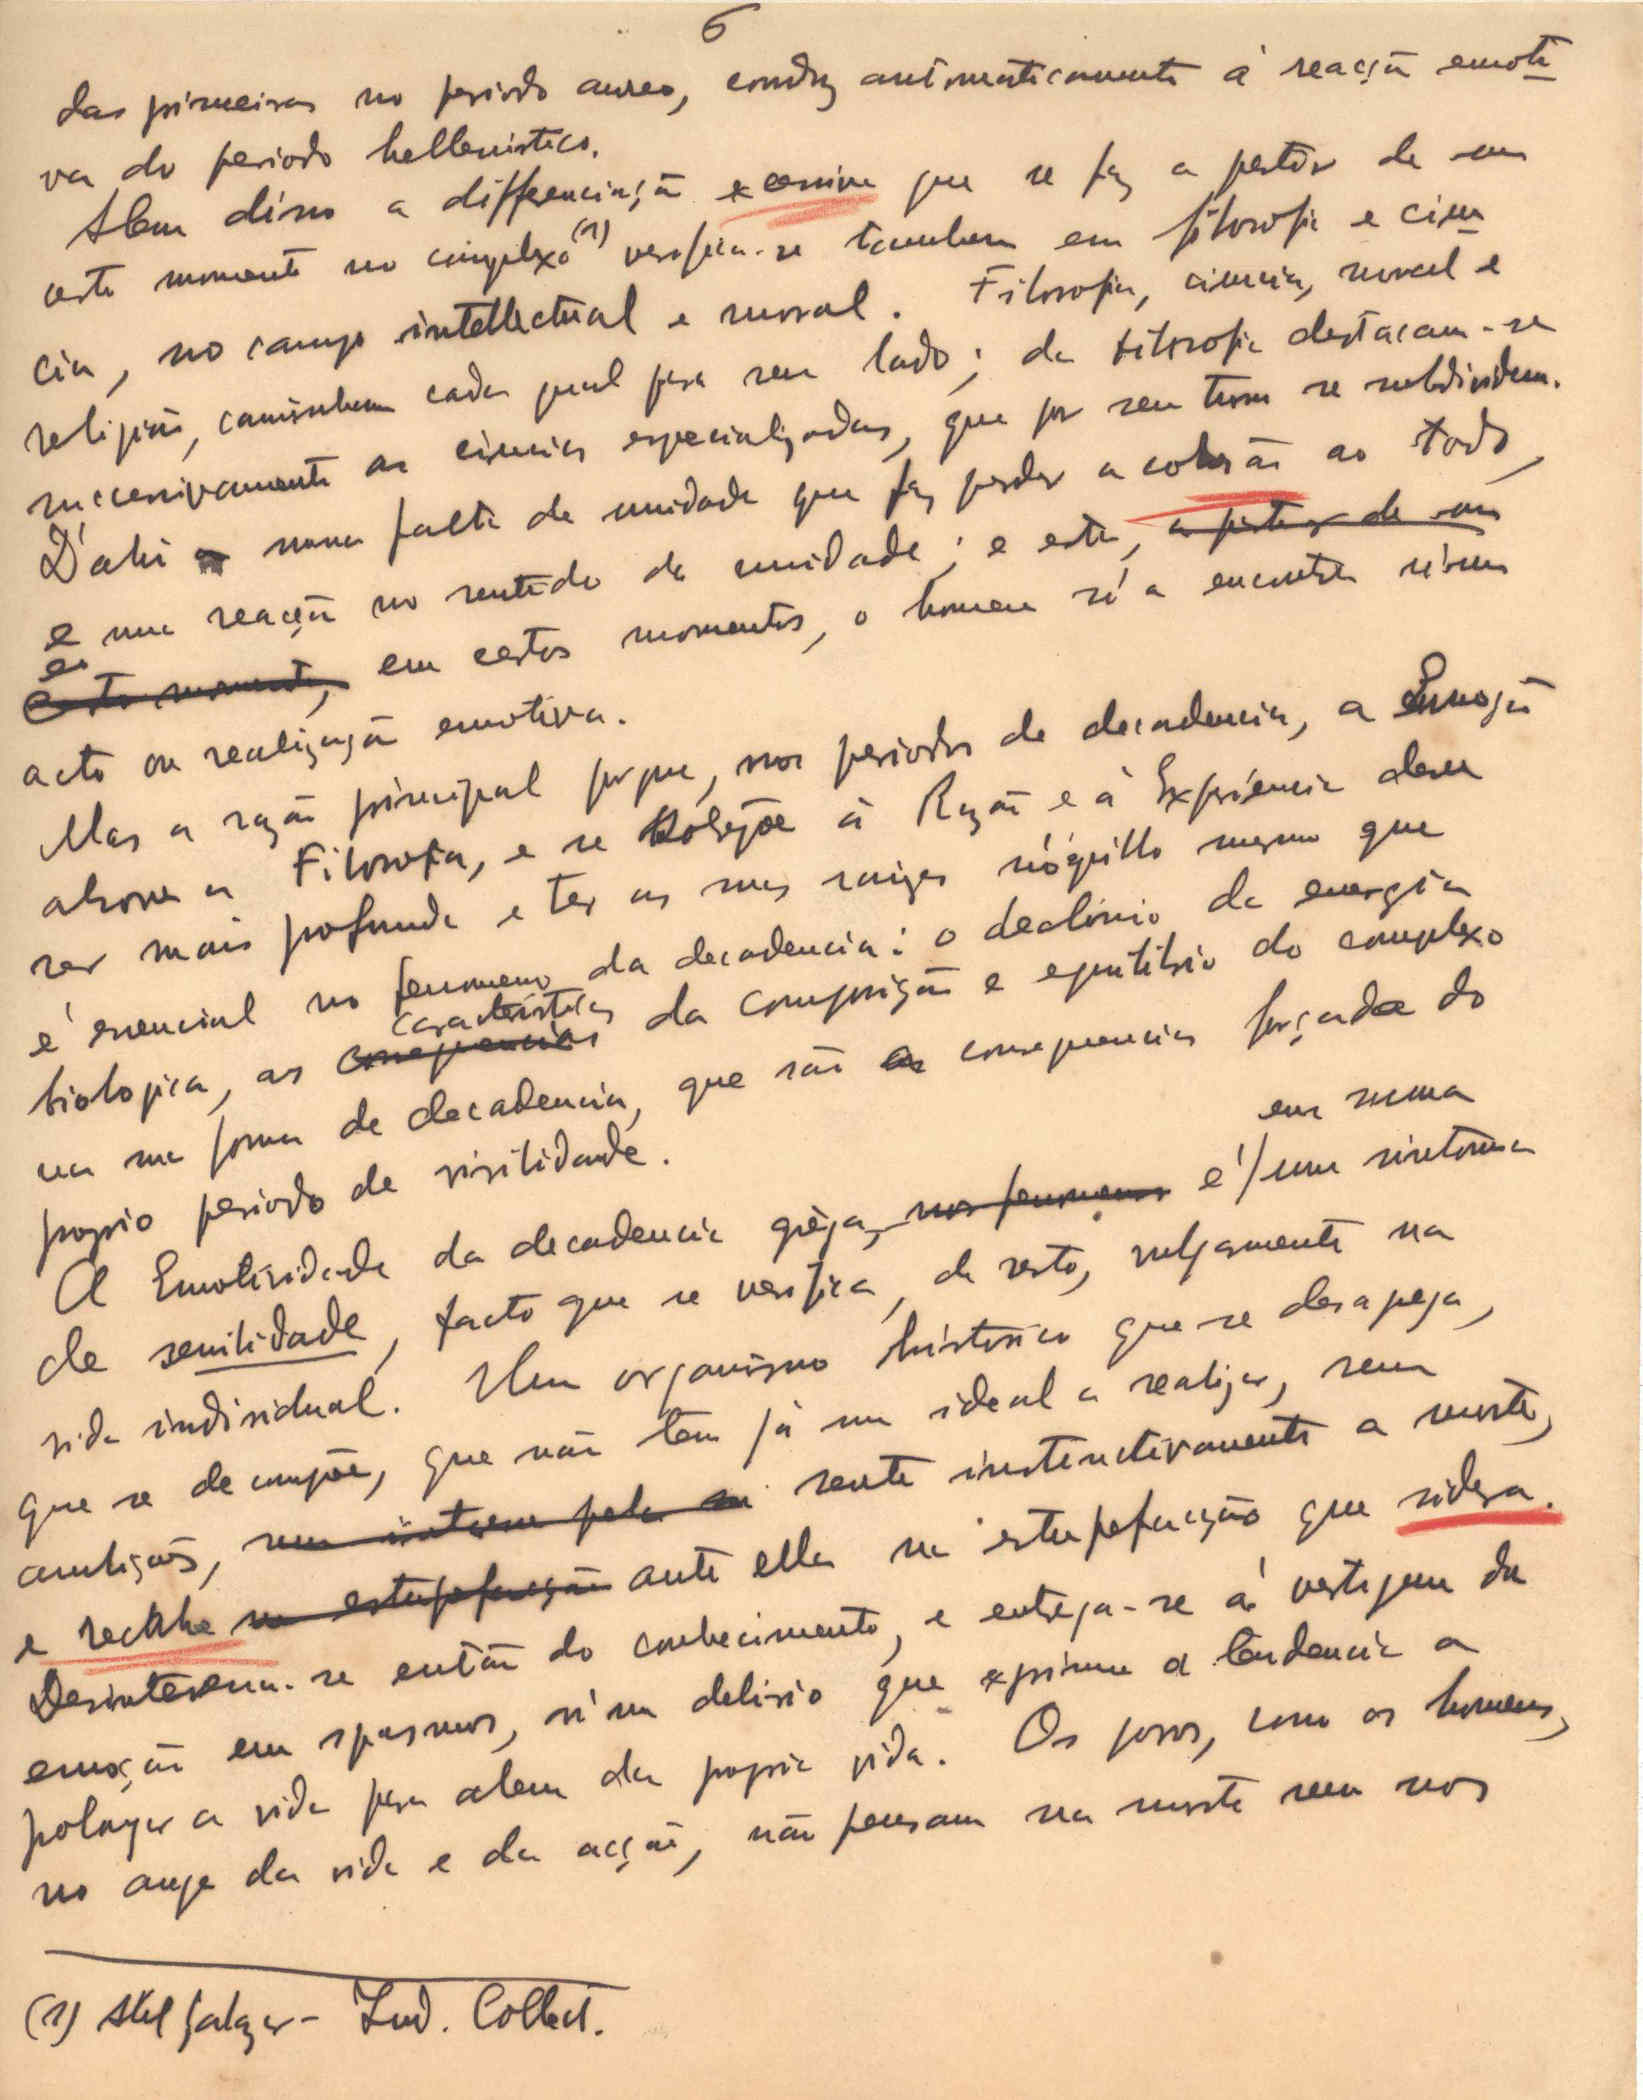 6
das primeiras no periodo aureo, conduz automaticamente á reacção emoti
va do periodo hellenistico.
Alem disso a differenciação excessiva que se faz a partir de um
certo momento no complexo (1) verifica-se tambem em filosofia e cien
cia, no campo intellectual e moral. Filosofia, ciencia, moral e
religião, caminham cada qual para seu lado; da filosofia destacam-se
successivamente as ciencias especializadas, que por seu turno se subdividem.
D'ahi numa falta de unidade que faz perder a cohesão ao todo,
e uma reacção no sentido da unidade; e esta, a partir de um
certo momento, em certos momentos, o homem só a encontra n'um
acto ou realização emotiva.
Mas a razão principal porque, nos periodos de decadencia, a Emoção
absorve a Filosofia, e se sobrepõe á Razão e á Experiencia deve
ser mais profunda e ter as suas raizes n'aquillo mesmo que
é essencial no fenomeno da decadencia: o declinio da energia
biologica, as consequencias caracteristicas da composição e equilibrio do complexo
na sua forma de decadencia, que são as consequencias forçadas do
proprio periodo de virilidade.
A Emotividade da decadencia grega, nos fenomenos é / em suma um sintoma
de senilidade, facto que se verifica, de resto, vulgarmente na
vida individual. Um organismo historico que se desapega,
que se decompõe, que não tem já um ideal a realizar, sem
ambições, sem interesse pela sente instinctivamente a morte,
e recolhe na estupefacção ante ella na estupefacção que sidera.
Desinteressa-se então do conhecimento, e entrega-se á vertigem da
emoção em spasmos, n'um delirio que exprime a tendencia a
prolongar a vida para alem da propria vida. Os povos, como os homens,
no auge da vida e da acção, não pensam na morte nem nos
(1) Abel Salazar - Ind. Collect.